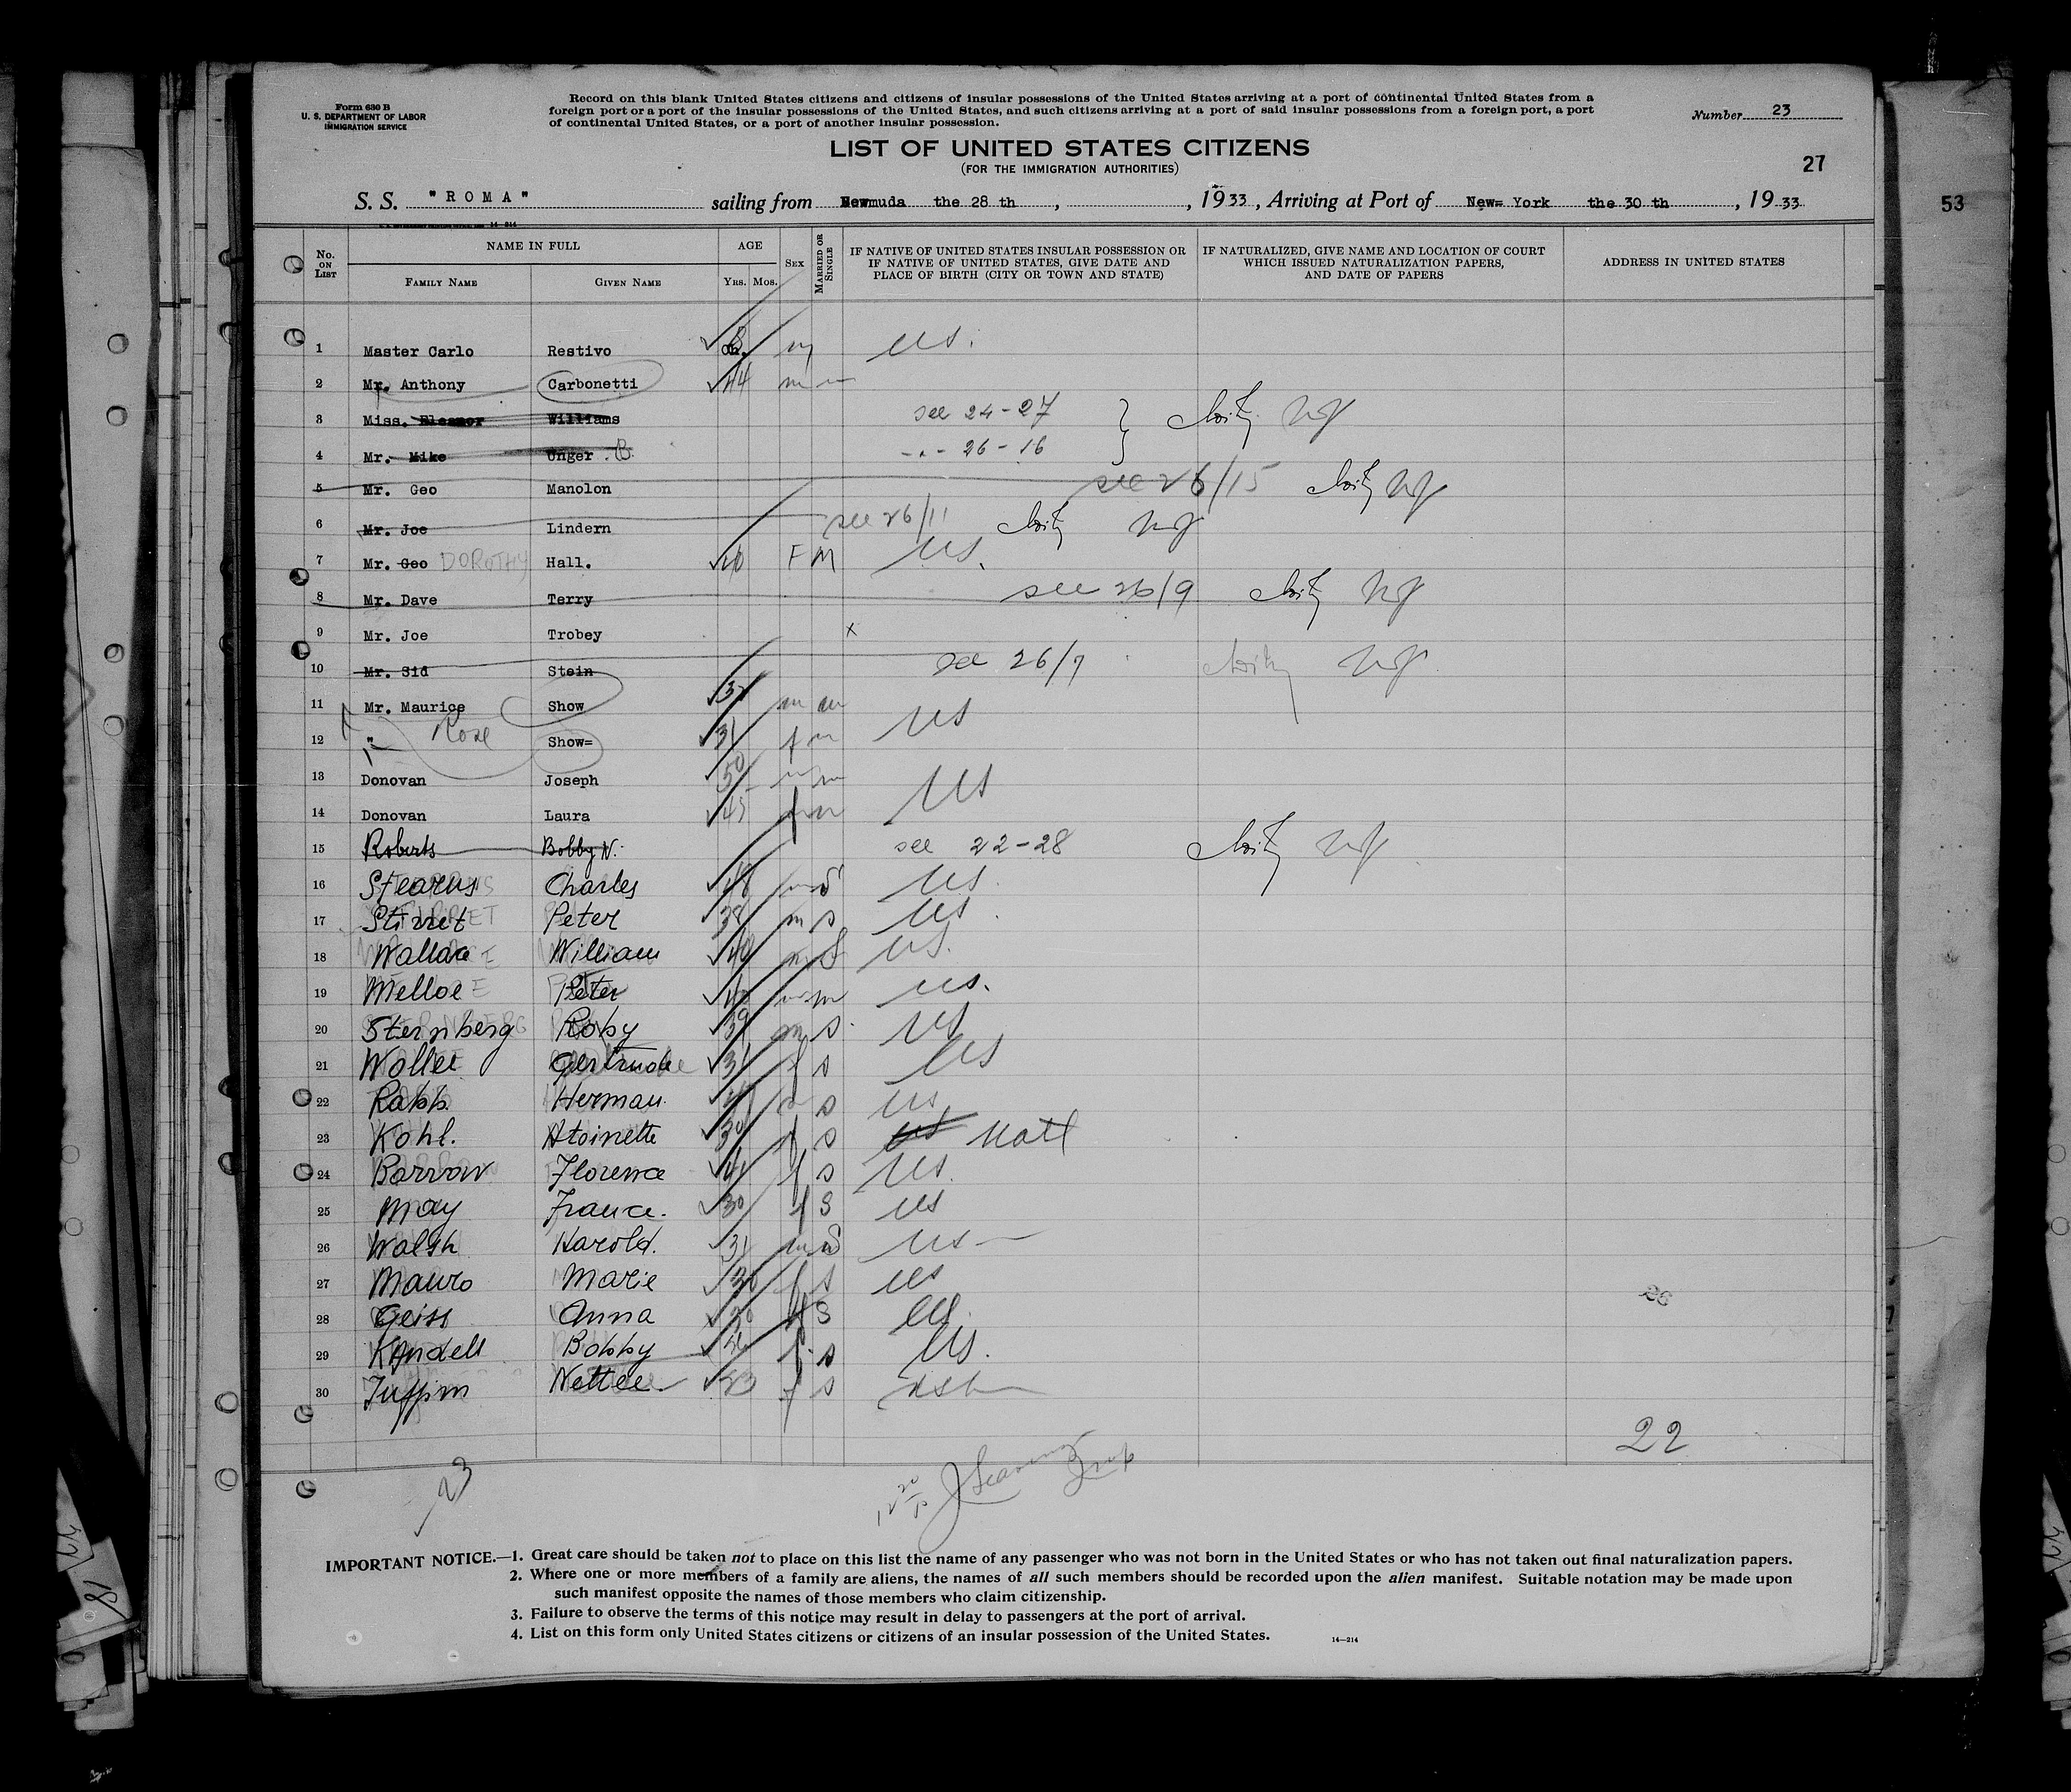 Form 630 B
U. S. DEPARTMENT OF LABOR
IMMIGRATION SERVICE
Record on this blank United States citizens and citizens of insular possessions of the United States arriving at a port of continental United States from a
foreign port or a port of the insular possessions of the United States, and such citizens arriving at a port of said insular possessions from a foreign port, a port
of continental United States, or a port of another insular possession.
Number 23
LIST OF UNITED STATES CITIZENS
(FOR THE IMMIGRATION AUTHORITIES)
27
53
S. S. "ROMA" sailing from muda the 28 th , , 1933, Arriving at Port of New= York the 30 th , 1933
No. ON LIST
NAME IN FULL
FAMILY NAME
GIVEN NAME
AGE
YRS. MOS.
SEX
MARRIED OR SINGLE
IF NATIVE OF UNITED STATES INSULAR POSSESSION OR
IF NATIVE OF UNITED STATES, GIVE DATE AND
PLACE OF BIRTH (CITY OR TOWN AND STATE)
IF NATURALIZED, GIVE NAME AND LOCATION OF COURT
WHICH ISSUED NATURALIZATION PAPERS,
AND DATE OF PAPERS
ADDRESS IN UNITED STATES
1 Master Carlo Restivo m US.
2 Mr. Anthony Carbonetti 44 m m
3 Miss. Eleanor Williams see 24-27
4 Mr. Mike Unger 26-16
5 Mr. Geo Manolon see 26/15
6 Mr. Joe Lindern see 26/11
7 Mr. Geo DOROTHY Hall. 40 F M US.
8 Mr. Dave Terry see 26/9
9 Mr. Joe Trobey x
10 Mr. Sid Stein see 26/7
11 Mr. Maurice Show m m US
12 " Rose Show= 31 f m
13 Donovan Joseph 50 m m US
14 Donovan Laura 45 f m
15 Roberts Bobby N. see 22-28
16 Stearns Charles 48 m S US.
17 Stirret Peter 38 m S US.
18 Wallace William 40 m S US.
19 Melloe Peter m m US.
20 Sternberg Roby 39 m S. US
21 Wollee Gertrude 31 f S US
22 Rabb. Herman. S US
23 Kohl. Atoinette 30 f S US Natl
24 Barrow Florence f S US.
25 May France. 30 f S US
26 Walsh Harold. 31 m S US
27 Mauro Marie 30 f S US
28 Geiss Anna 30 f S US.
29 Kandell Bobby 26 f S US.
30 Nettee 23 f S
22
23
IMPORTANT NOTICE.—1. Great care should be taken not to place on this list the name of any passenger who was not born in the United States or who has not taken out final naturalization papers.
2. Where one or more members of a family are aliens, the names of all such members should be recorded upon the alien manifest. Suitable notation may be made upon
such manifest opposite the names of those members who claim citizenship.
3. Failure to observe the terms of this notice may result in delay to passengers at the port of arrival.
4. List on this form only United States citizens or citizens of an insular possession of the United States.
14—214